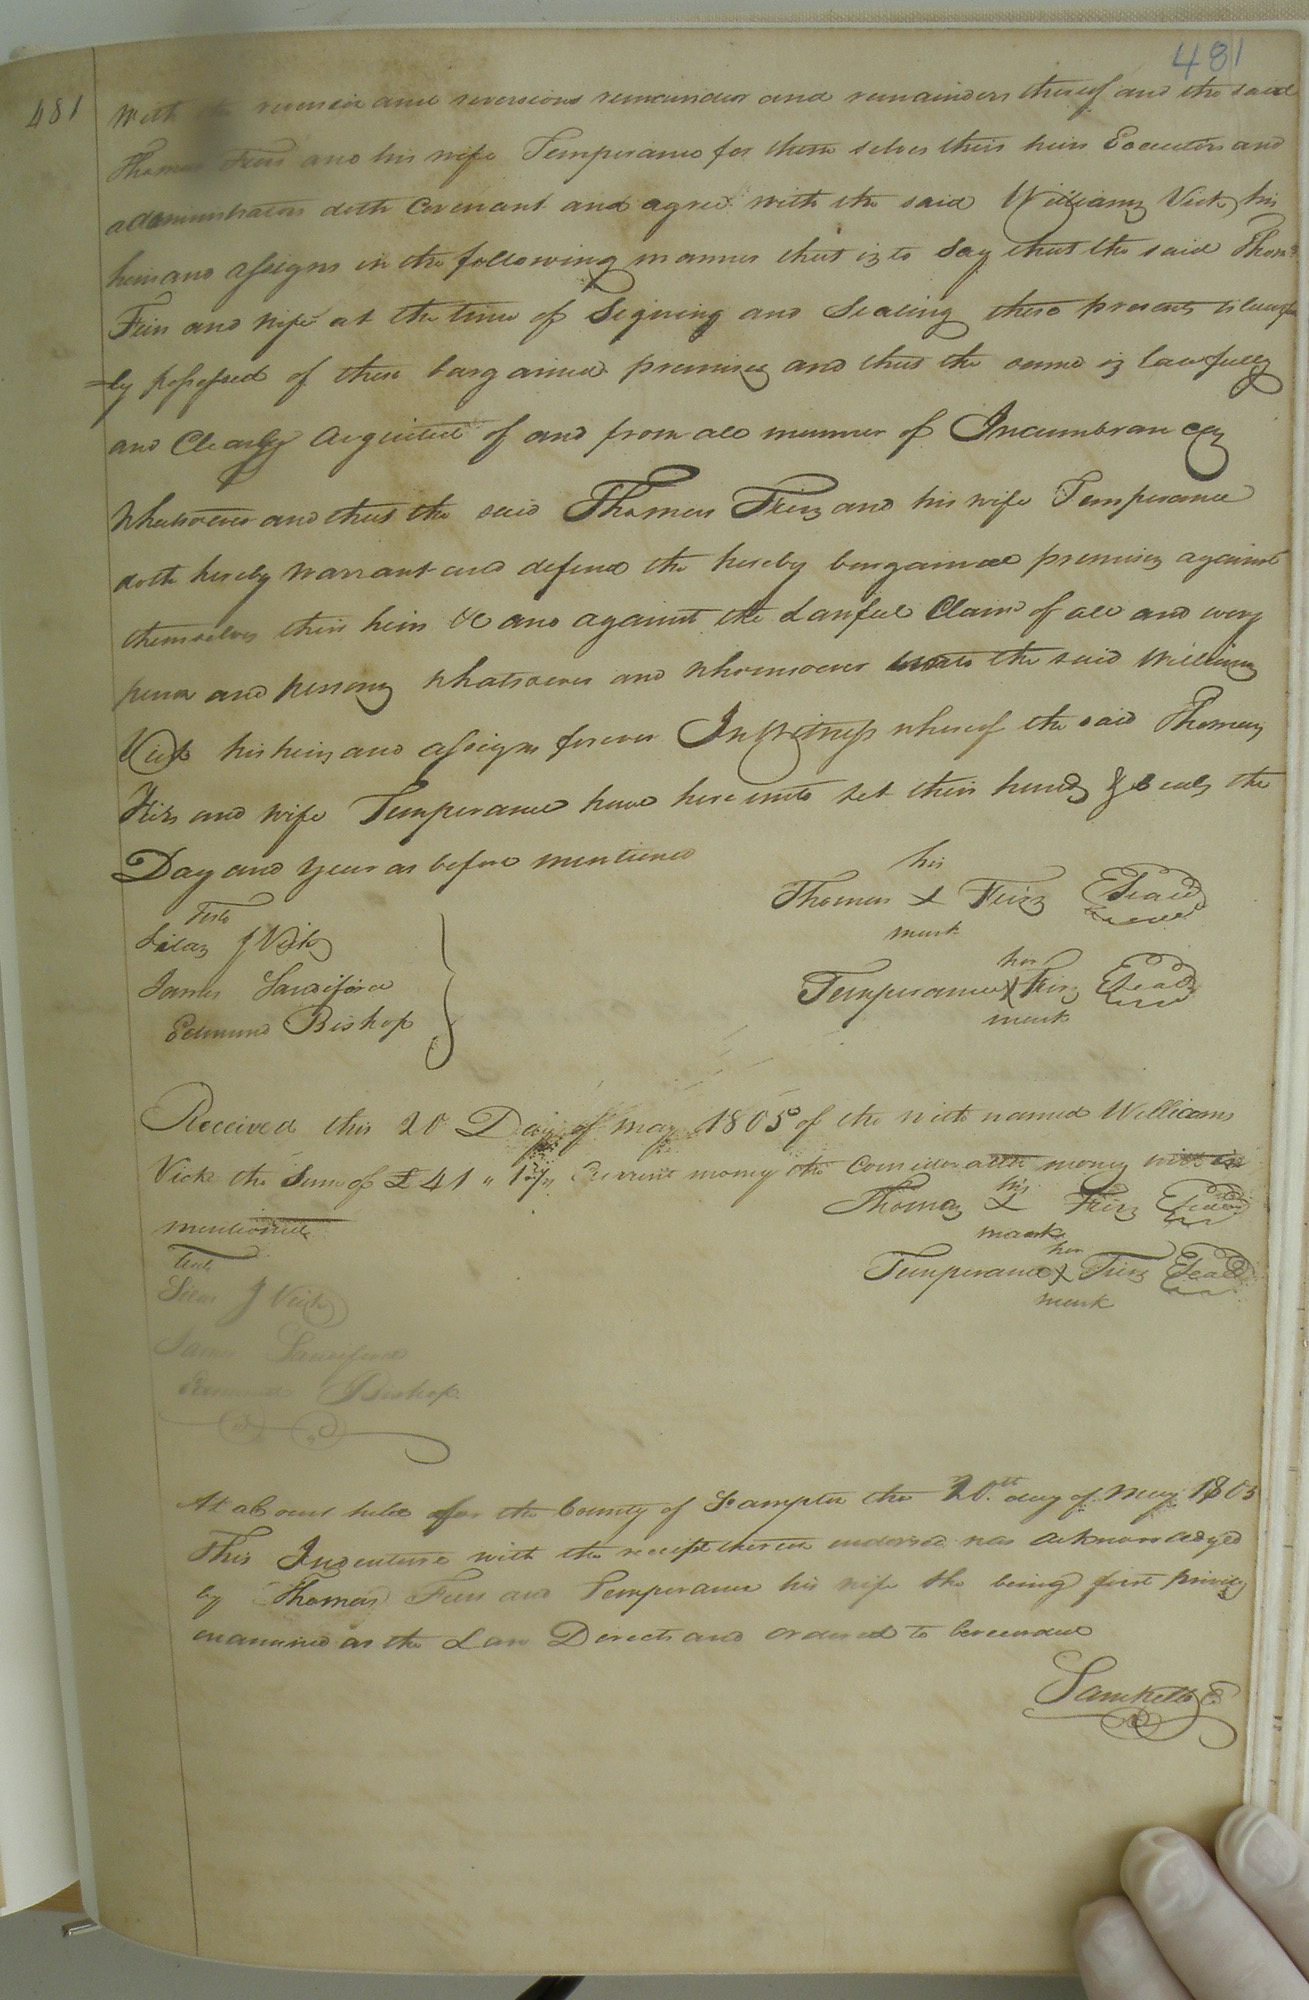 481
481
With the reversion and reversions remainder and remainders thereof and the said
Thomas and his wife Temperance for them selves their heirs Executors and
administrators doth Covenant and agree with the said William Vick his
heirs and assigns in the following manner that is to say that the said Thomas
and wife at the time of Signing and Sealing these presents is lawful
=ly possessed of these bargained premises and that the same is lawfully
and Clearly Acquitted of and from all manner of Incumbrances
whatsoever and that the said Thomas and his wife Temperance
doth hereby warrant and defend the hereby bargained premises against
themselves their heirs &c and against the Lawful Claim of all and every
person and persons whatsoever and whomsoever unto the said William
Vick his heirs and assigns forever In Witness whereof the said Thomas
and wife Temperance have here unto set their hands & seals the
Day and year as before mentioned
his
Thomas X Seal
mark
Teste
Silas J Vick
James Sandiford
Edmund Bishop
her
Temperance X Seal
mark
Received this 20 Day of May 1805 of the with named William
Vick the Sum of £41 " Current money the Consideration money within
mentioned
his
Thomas X Seal
mark
her
Temperance X Seal
mark
Teste
Silas J Vick
James Sandiford
Edmund Bishop
At a Court held for the County of the 20th day of May 1805
This Indenture with the receipt thereon endorsed was acknowledged
by Thomas and Temperance his wife she being first privily
examined as the Law Directs and ordered to be recorded